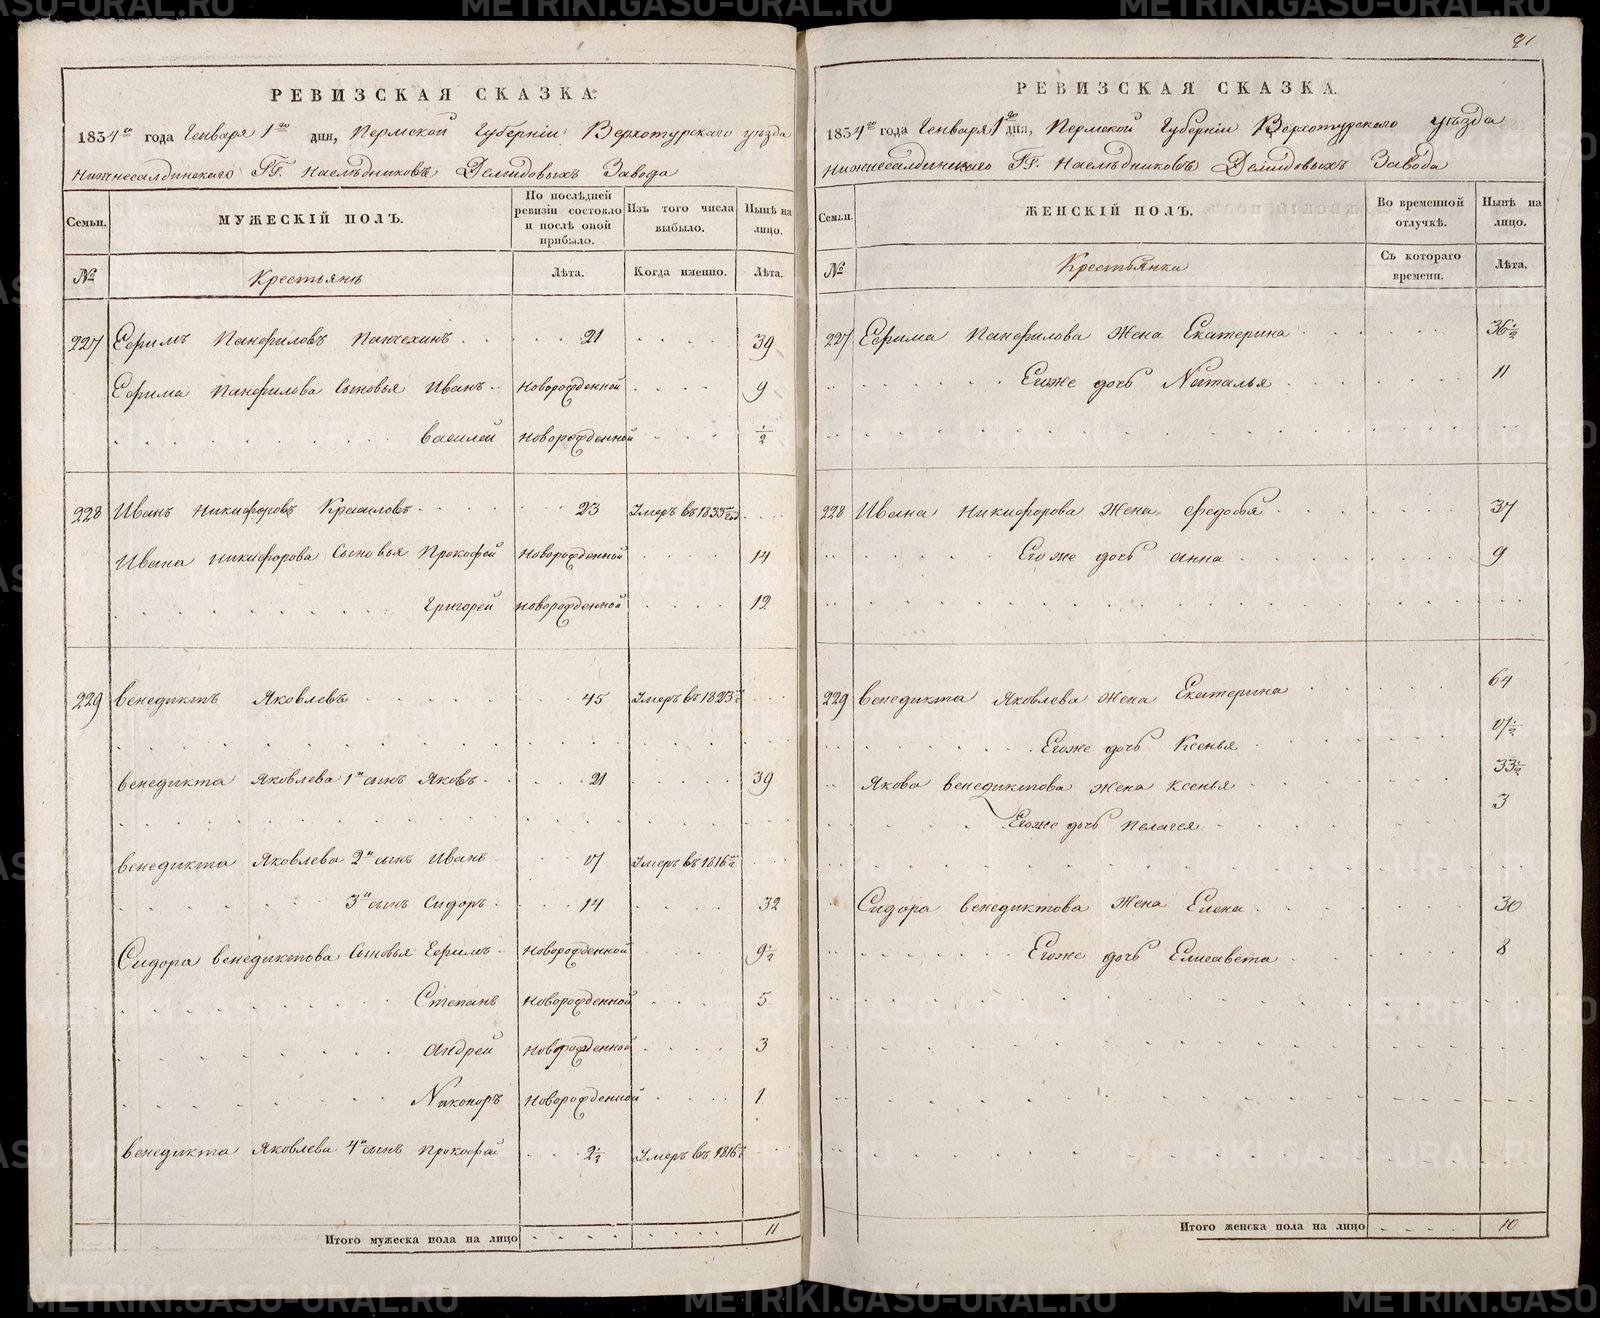 РЕВИЗСКАЯ СКАЗКА.
1834го года Генваря 1го дня, Пермской Губернiи Верхотурскаго уѣзда
Нижнесалдинскаго ГГ. Наслѣдниковъ Демидовыхъ Завода
Семьи. МУЖЕСКIЙ ПОЛЪ. По послѣдней ревизiи состояло и послѣ оной прибыло. Изъ того числа выбыло. Нынѣ на лицо.
№ Крестьянъ Лѣта. Когда именно. Лѣта.
227 Ефримъ Панфиловъ 21 39
Ефрима Панфилова сыновья Иванъ Новорожденной 9
Василей Новорожденной 1/2
228 Иванъ Никифоровъ 23 Умеръ въ 1833 м году
Ивана Никифорова сыновья Прокофей Новорожденной 14
Григорей Новорожденной 12
229 Венедиктъ Яковлевъ 45 Умеръ въ 1823
Венедикта Яковлева 1й сынъ Яковъ 21 39
Венедикта Яковлева 2й сынъ Иванъ 17 Умеръ въ 1816
3й сынъ Сидоръ 14 32
Сидора Венедиктова сыновья Ефримъ Новорожденной 9 1/2
Степанъ Новорожденной 5
Андрей Новорожденной 3
Никоноръ Новорожденной 1
Венедикта Яковлева 4й сынъ Прокофей 2 1/2 Умеръ въ 1816
Итого мужеска пола на лицо 11
91
РЕВИЗСКАЯ СКАЗКА.
1834го года Генваря 1го дня, Пермской Губернiи Верхотурскаго уѣзда
Нижнесалдинскаго ГГ. Наслѣдниковъ Демидовыхъ Завода
Семьи. ЖЕНСКIЙ ПОЛЪ. Во временной отлучкѣ. Нынѣ на лицо.
№ Крестьянка Съ котораго времени. Лѣта.
227 Ефрима Панфилова Жена Екатерина 36 1/2
Его же дочь Наталья 11
228 Ивана Никифорова Жена Федосья 37
Его же дочь Анна 9
229 Венедикта Яковлева Жена Екатерина 64
Его же дочь Ксенья 17 1/2
Якова Венедиктова Жена Ксенья 33 1/2
Его же дочь Пелагея 3
Сидора Венедиктова Жена Елена 30
Его же дочь Елисавета 8
Итого женска пола на лицо 10
METRIKI.GASU-URAL.RU